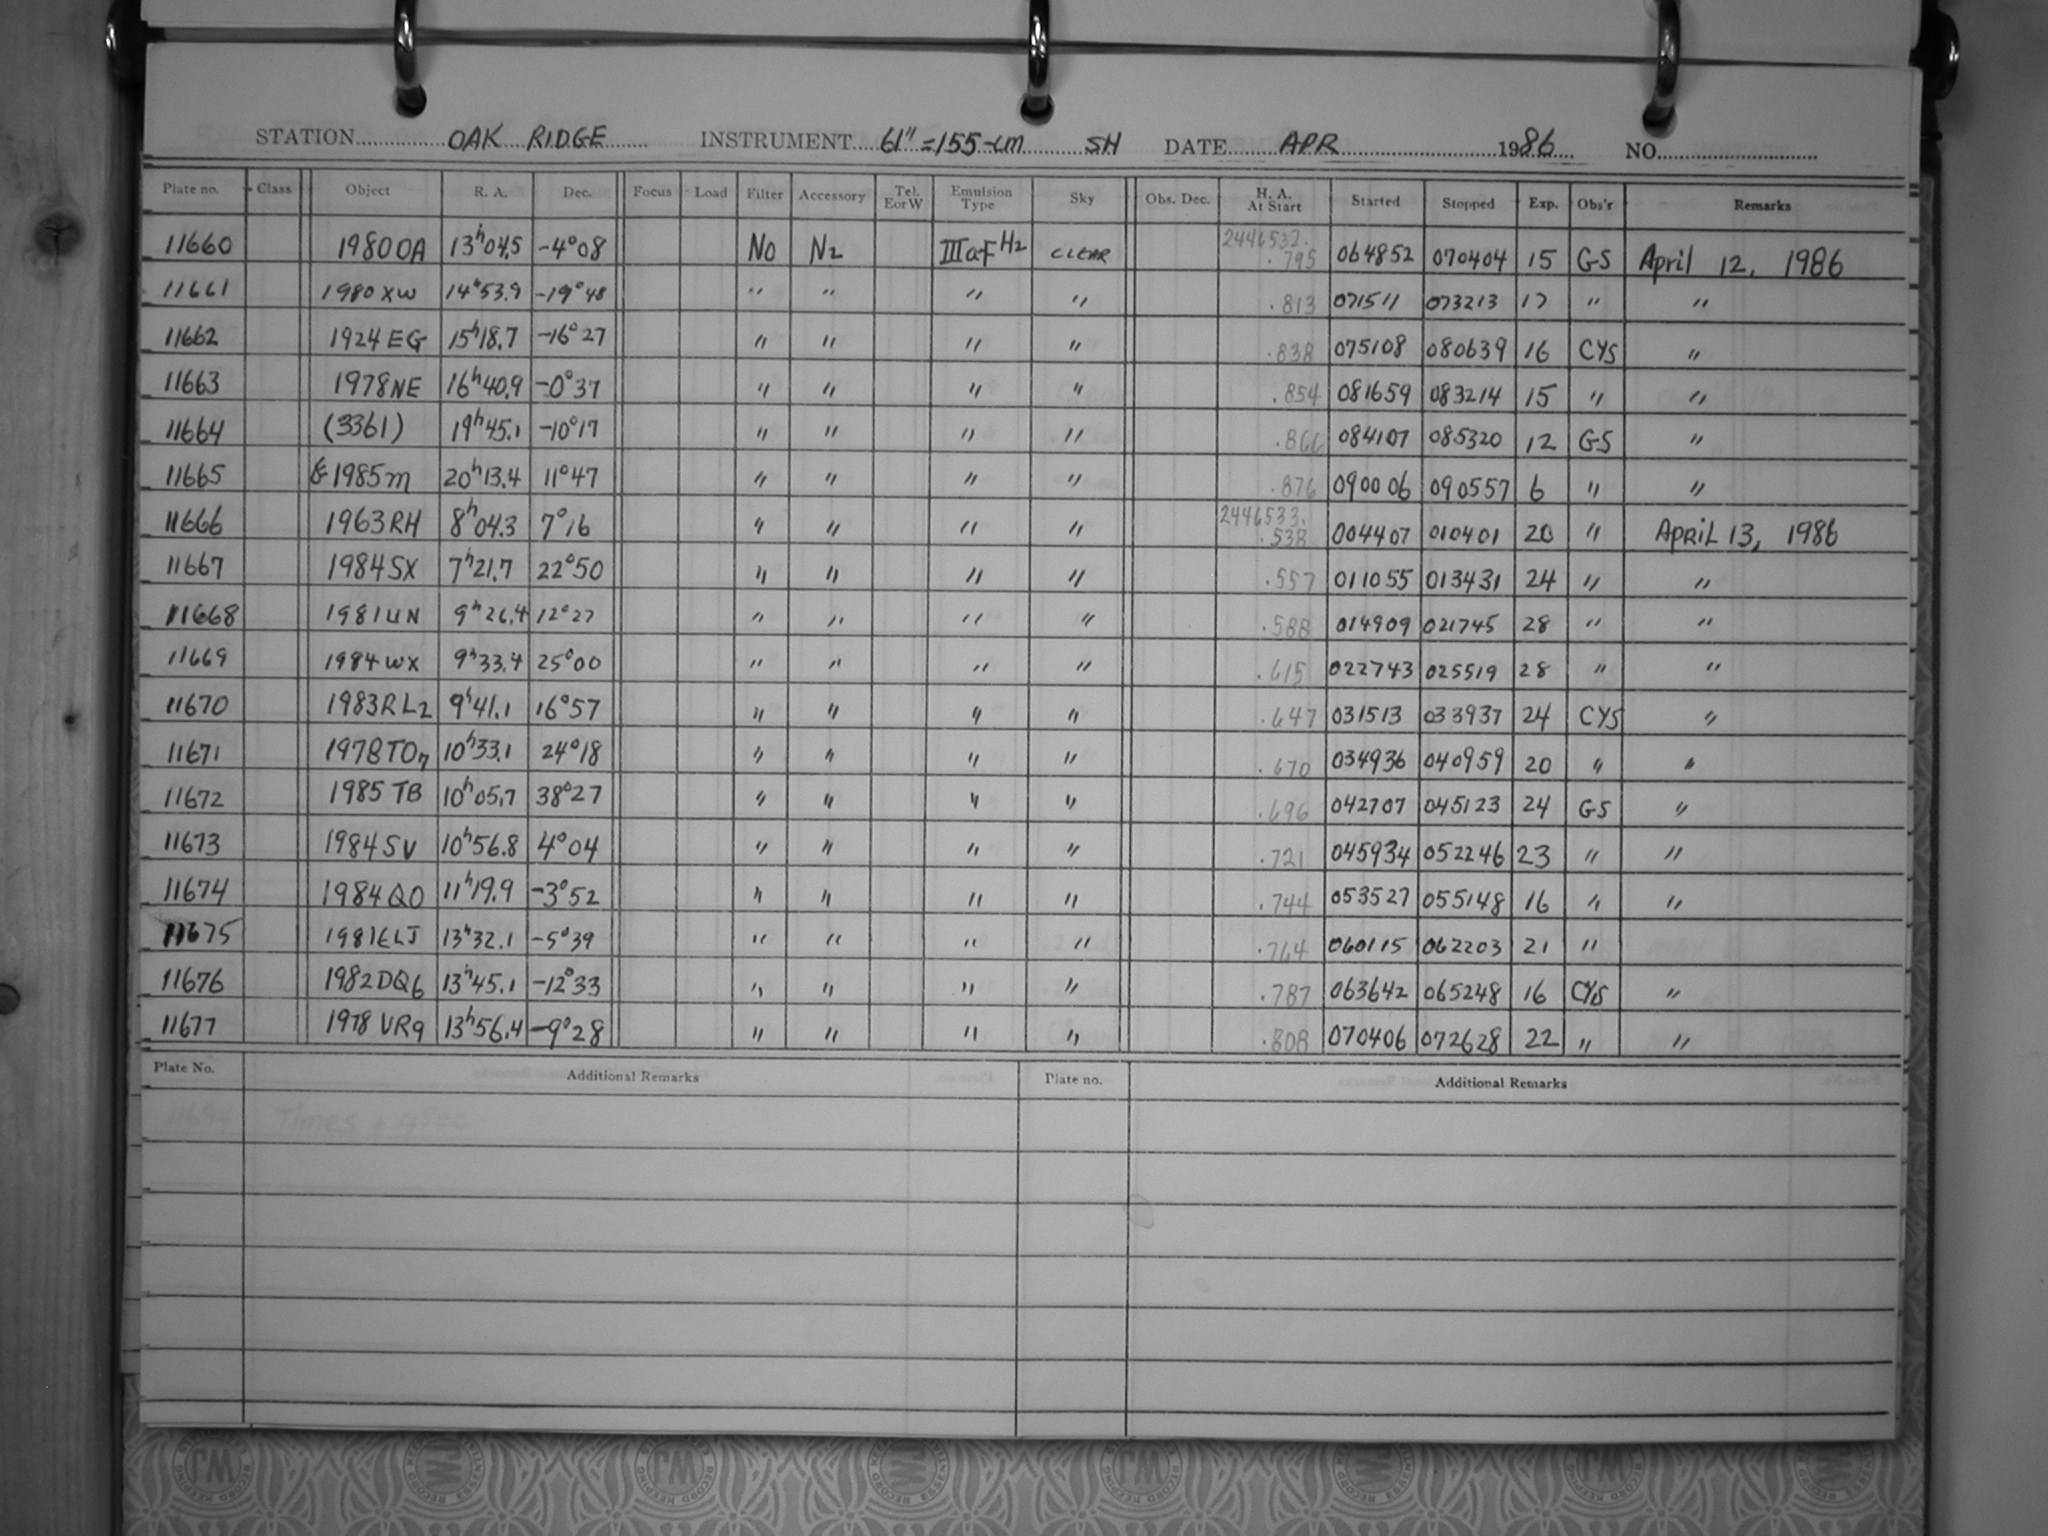 STATION OAK RIDGE INSTRUMENT 61" = 155-cm SH DATE APR 1986 NO.
Plate no. Class Object R. A. Dec. Focus Load Filter Accessory Tel. E or W Emulsion Type Sky Obs. Dec. H. A. At Start Started Stopped Exp. Obs'r Remarks
11660 1980 OA 13h04.5 -4°08 No N2 IIIaF H2 CLEAR 2446532. .795 064852 070404 15 GS April 12, 1986
11661 1980 XW 14h53.9 -19°48 " " " " .813 071511 073213 17 " "
11662 1924 EG 15h18.7 -16°27 " " " " .838 075108 080639 16 CYS "
11663 1978NE 16h40.9 -0°37 " " " " .854 081659 083214 15 " "
11664 (3361) 19h45.1 -10°17 " " " " .866 084107 085320 12 GS "
11665 1985m 20h13.4 11°47 " " " " .876 090006 090557 6 " "
11666 1963RH 8h04.3 7°16 " " " " 2446533. .538 004407 010401 20 " APRIL 13, 1986
11667 1984SX 7h21.7 22°50 " " " " .557 011055 013431 24 " "
11668 1981UN 9h26.4 12°27 " " " " .588 014909 021745 28 " "
11669 1984 WX 9h33.4 25°00 " " " " .615 022743 025519 28 " "
11670 1983RL2 9h41.1 16°57 " " " " .647 031513 033937 24 CYS "
11671 1978TO7 10h33.1 24°18 " " " " .670 034936 040959 20 " "
11672 1985 TB 10h05.7 38°27 " " " " .696 042707 045123 24 GS "
11673 1984SV 10h56.8 4°04 " " " " .721 045934 052246 23 " "
11674 1984QO 11h19.9 -3°52 " " " " .744 053527 055148 16 " "
11675 1981ELJ 13h32.1 -5°39 " " " " .764 060115 062203 21 "
11676 1982DQ6 13h45.1 -12°33 " " " " .787 063642 065248 16 CYS "
11677 1978 VR9 13h56.4 -9°28 " " " " .808 070406 072628 22 " "
Plate No. Additional Remarks Plate no. Additional Remarks
11694 Times + 4sec